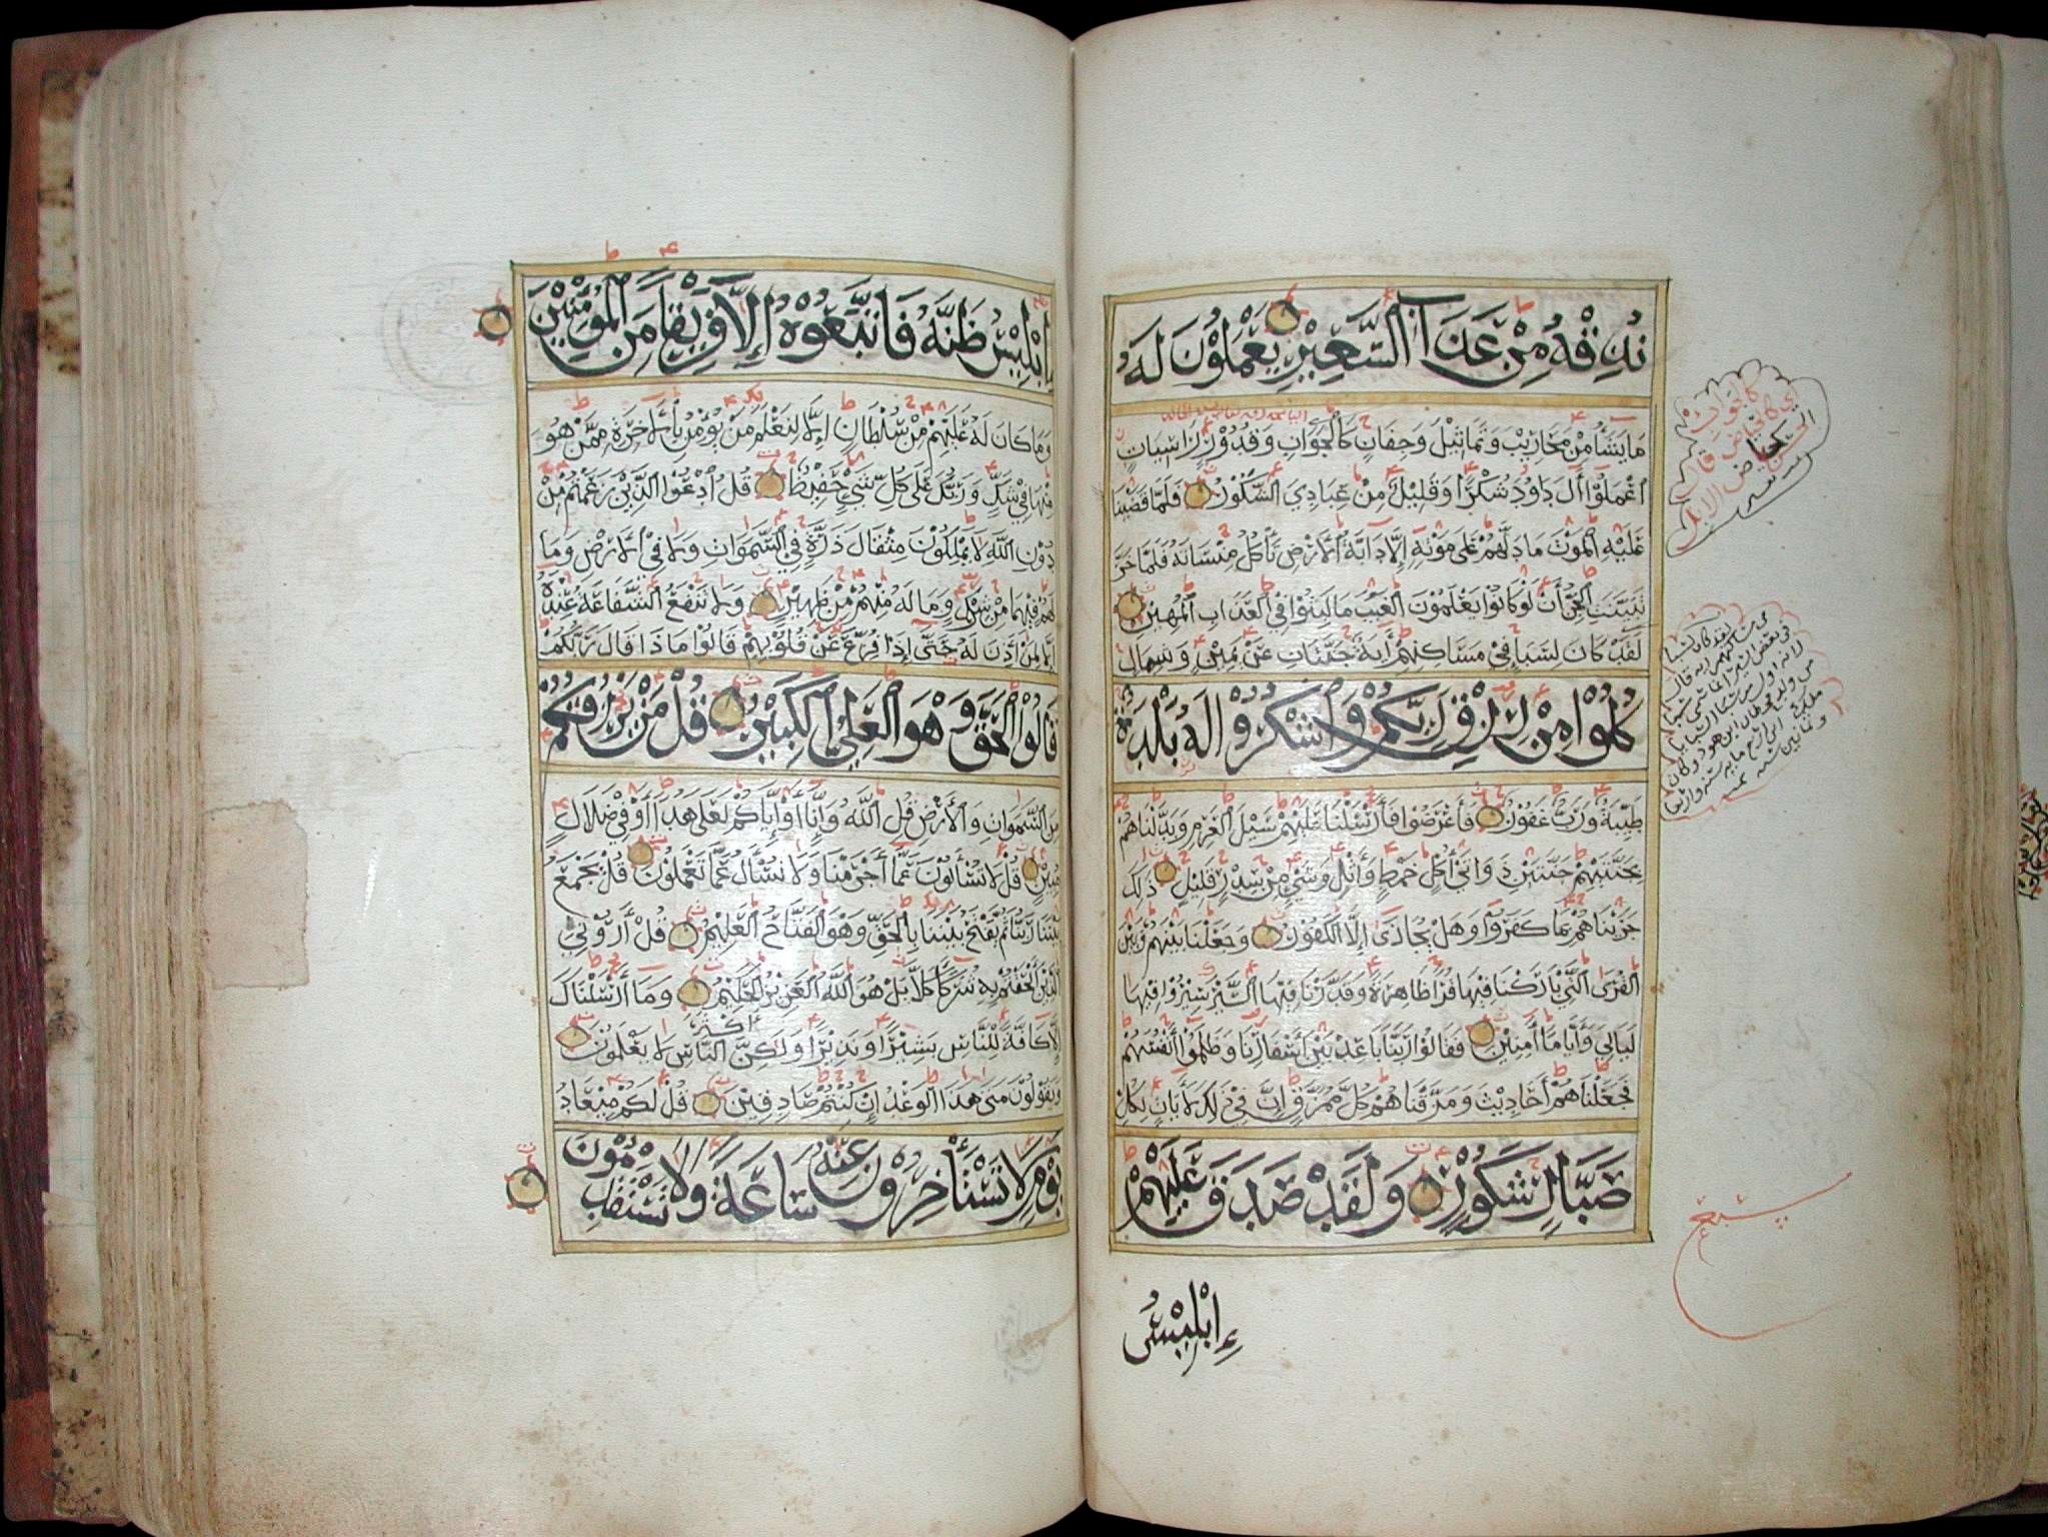 نُذِقْهُ مِنْ عَذَابِ السَّعِيْرِ يَعْمَلُوْنَ لَهُ
مَا يَشَآءُ مِنْ مَحَارِيْبَ وَتَمَاثِيْلَ وَجِفَانٍ كَالْجَوَابِ وَقُدُوْرٍ رَاسِيَاتٍ
اعْمَلُوْٓا اٰلَ دَاوُدَ شُكْرًا وَقَلِيْلٌ مِنْ عِبَادِيَ الشَّكُوْرُ فَلَمَّا قَضَيْنَا
عَلَيْهِ الْمَوْتَ مَا دَلَّهُمْ عَلَى مَوْتِهِ إِلَّا دَابَّةُ الْأَرْضِ تَأْكُلُ مِنْسَأَتَهُ فَلَمَّا خَرَّ
تَبَيَّنَتِ الْجِنُّ أَنْ لَوْ كَانُوْا يَعْلَمُوْنَ الْغَيْبَ مَا لَبِثُوْا فِي الْعَذَابِ الْمُهِيْنِ
لَقَدْ كَانَ لِسَبَإٍ فِيْ مَسَاكِنِهِمْ اٰيَةٌ جَنَّتَانِ عَنْ يَمِيْنٍ وَشِمَالٍ
كُلُوْا مِنْ رِزْقِ رَبِّكُمْ وَاشْكُرُوْا لَهُ بَلْدَةٌ
طَيِّبَةٌ وَرَبٌّ غَفُوْرٌ فَأَعْرَضُوْا فَأَرْسَلْنَا عَلَيْهِمْ سَيْلَ الْعَرِمِ وَبَدَّلْنَاهُمْ
بِجَنَّتَيْهِمْ جَنَّتَيْنِ ذَوَاتَيْ أُكُلٍ خَمْطٍ وَأَثْلٍ وَشَيْءٍ مِنْ سِدْرٍ قَلِيْلٍ ذٰلِكَ
جَزَيْنَاهُمْ بِمَا كَفَرُوْا وَهَلْ يُجَازَى إِلَّا الْكَفُوْرُ وَجَعَلْنَا بَيْنَهُمْ وَبَيْنَ
الْقُرَى الَّتِيْ بَارَكْنَا فِيْهَا قُرًا ظَاهِرَةً وَقَدَّرْنَا فِيْهَا السَّيْرَ سِيْرُوْا فِيْهَا
لَيَالِيَ وَأَيَّامًا اٰمِنِيْنَ فَقَالُوْا رَبَّنَا بَاعِدْ بَيْنَ أَسْفَارِنَا وَظَلَمُوْا أَنْفُسَهُمْ
فَجَعَلْنَاهُمْ أَحَادِيْثَ وَمَزَّقْنَاهُمْ كُلَّ مُمَزَّقٍ إِنَّ فِيْ ذٰلِكَ لَاٰيَاتٍ لِكُلِّ
صَبَّارٍ شَكُوْرٍ وَلَقَدْ صَدَقَ عَلَيْهِمْ
إِبْلِيْسُ
إِبْلِيْسُ ظَنَّهُ فَاتَّبَعُوْهُ إِلَّا فَرِيْقًا مِنَ الْمُؤْمِنِيْنَ
وَمَا كَانَ لَهُ عَلَيْهِمْ مِنْ سُلْطَانٍ إِلَّا لِنَعْلَمَ مَنْ يُؤْمِنُ بِالْاٰخِرَةِ مِمَّنْ هُوَ
مِنْهَا فِيْ شَكٍّ وَرَبُّكَ عَلَى كُلِّ شَيْءٍ حَفِيْظٌ قُلِ ادْعُوا الَّذِيْنَ زَعَمْتُمْ مِنْ
دُوْنِ اللّٰهِ لَا يَمْلِكُوْنَ مِثْقَالَ ذَرَّةٍ فِي السَّمٰوَاتِ وَلَا فِي الْأَرْضِ وَمَا
لَهُمْ فِيْهِمَا مِنْ شِرْكٍ وَمَا لَهُ مِنْهُمْ مِنْ ظَهِيْرٍ وَلَا تَنْفَعُ الشَّفَاعَةُ عِنْدَهُ
إِلَّا لِمَنْ أَذِنَ لَهُ حَتَّى إِذَا فُزِّعَ عَنْ قُلُوْبِهِمْ قَالُوْا مَاذَا قَالَ رَبُّكُمْ
قَالُوا الْحَقَّ وَهُوَ الْعَلِيُّ الْكَبِيْرُ قُلْ مَنْ يَرْزُقُكُمْ
مِنَ السَّمٰوَاتِ وَالْأَرْضِ قُلِ اللّٰهُ وَإِنَّا أَوْ إِيَّاكُمْ لَعَلَى هُدًا أَوْ فِيْ ضَلَالٍ
مُبِيْنٍ قُلْ لَا تُسْأَلُوْنَ عَمَّا أَجْرَمْنَا وَلَا نُسْأَلُ عَمَّا تَعْمَلُوْنَ قُلْ يَجْمَعُ
بَيْنَنَا رَبُّنَا ثُمَّ يَفْتَحُ بَيْنَنَا بِالْحَقِّ وَهُوَ الْفَتَّاحُ الْعَلِيْمُ قُلْ أَرُوْنِيَ
الَّذِيْنَ أَلْحَقْتُمْ بِهِ شُرَكَآءَ كَلَّا بَلْ هُوَ اللّٰهُ الْعَزِيْزُ الْحَكِيْمُ وَمَا أَرْسَلْنَاكَ
إِلَّا كَافَّةً لِلنَّاسِ بَشِيْرًا وَنَذِيْرًا وَلَكِنَّ أَكْثَرَ النَّاسِ لَا يَعْلَمُوْنَ
وَيَقُوْلُوْنَ مَتَى هٰذَا الْوَعْدُ إِنْ كُنْتُمْ صَادِقِيْنَ قُلْ لَكُمْ مِيْعَادُ
يَوْمٍ لَا تَسْتَأْخِرُوْنَ عَنْهُ سَاعَةً وَلَا تَسْتَقْدِمُوْنَ